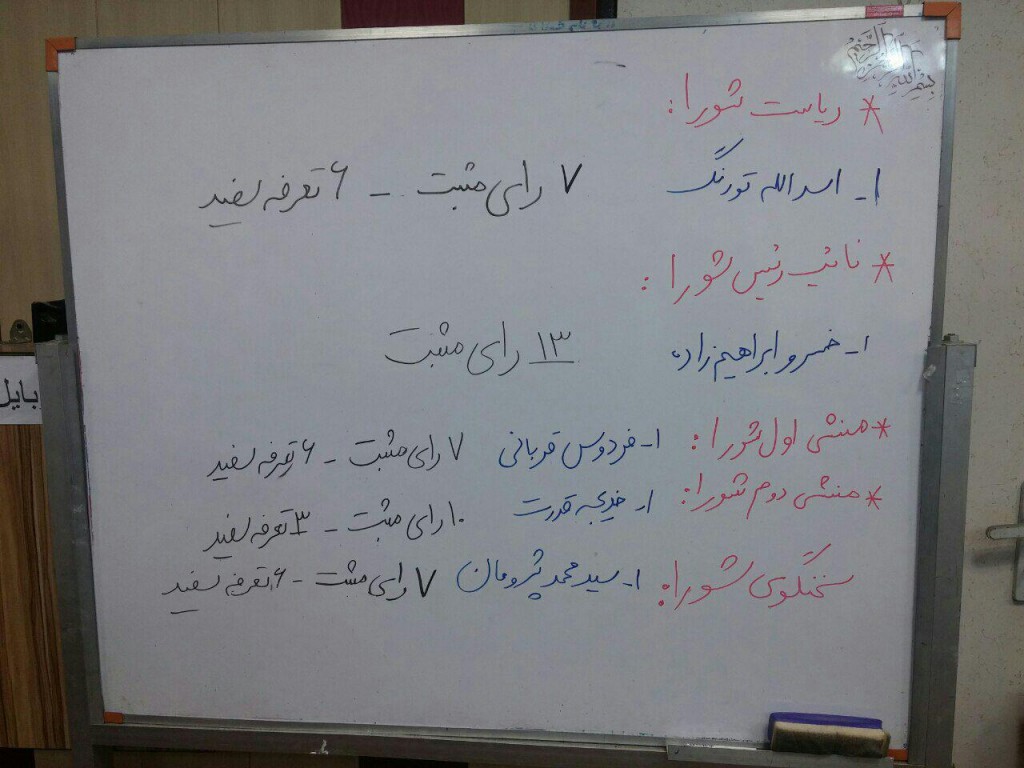 بسم الله الرحمن الرحیم
* ریاست شورا:
۱- اسدالله تورنگ ۷ رای مثبت - ۶ تعرفه سفید
* نائب رئیس شورا:
۱- خسرو ابراهیم زاده ۱۳ رای مثبت
* منشی اول شورا: ۱- فردوس قربانی ۷ رای مثبت - ۶ تعرفه سفید
* منشی دوم شورا: ۱- خدیجه قدرت ۱۰ رای مثبت - ۳ تعرفه سفید
سخنگوی شورا: ۱- سید محمد ۷ رای مثبت - ۶ تعرفه سفید
بایل